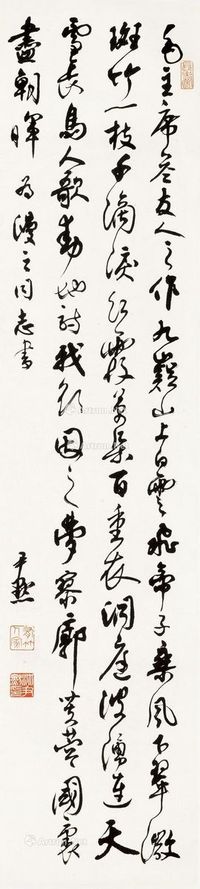 毛主席答友人之作九嶷山上白雲飛帝子乘風下翠微
斑竹一枝千滴淚紅霞萬朵百重衣洞庭波湧連天
雪長島人歌動地詩我欲因之夢寥廓芙蓉國裏
盡朝暉 為漫之同志書
尹默